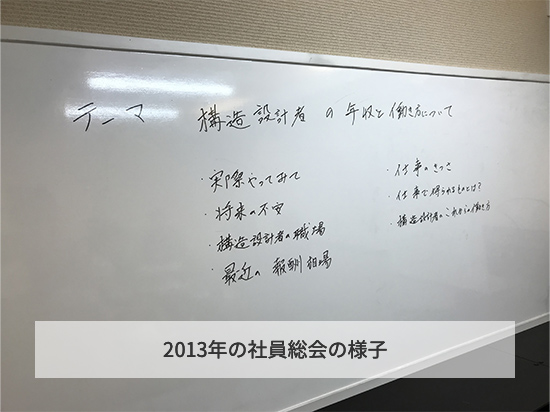 テーマ 構造設計者の年収と働き方について
・実際やってみて
・将来の不安
・構造設計者の職場
・最近の報酬相場
・仕事のきつさ
・仕事で得られるものとは?
・構造設計者のこれからの働き方
2013年の社員総会の様子